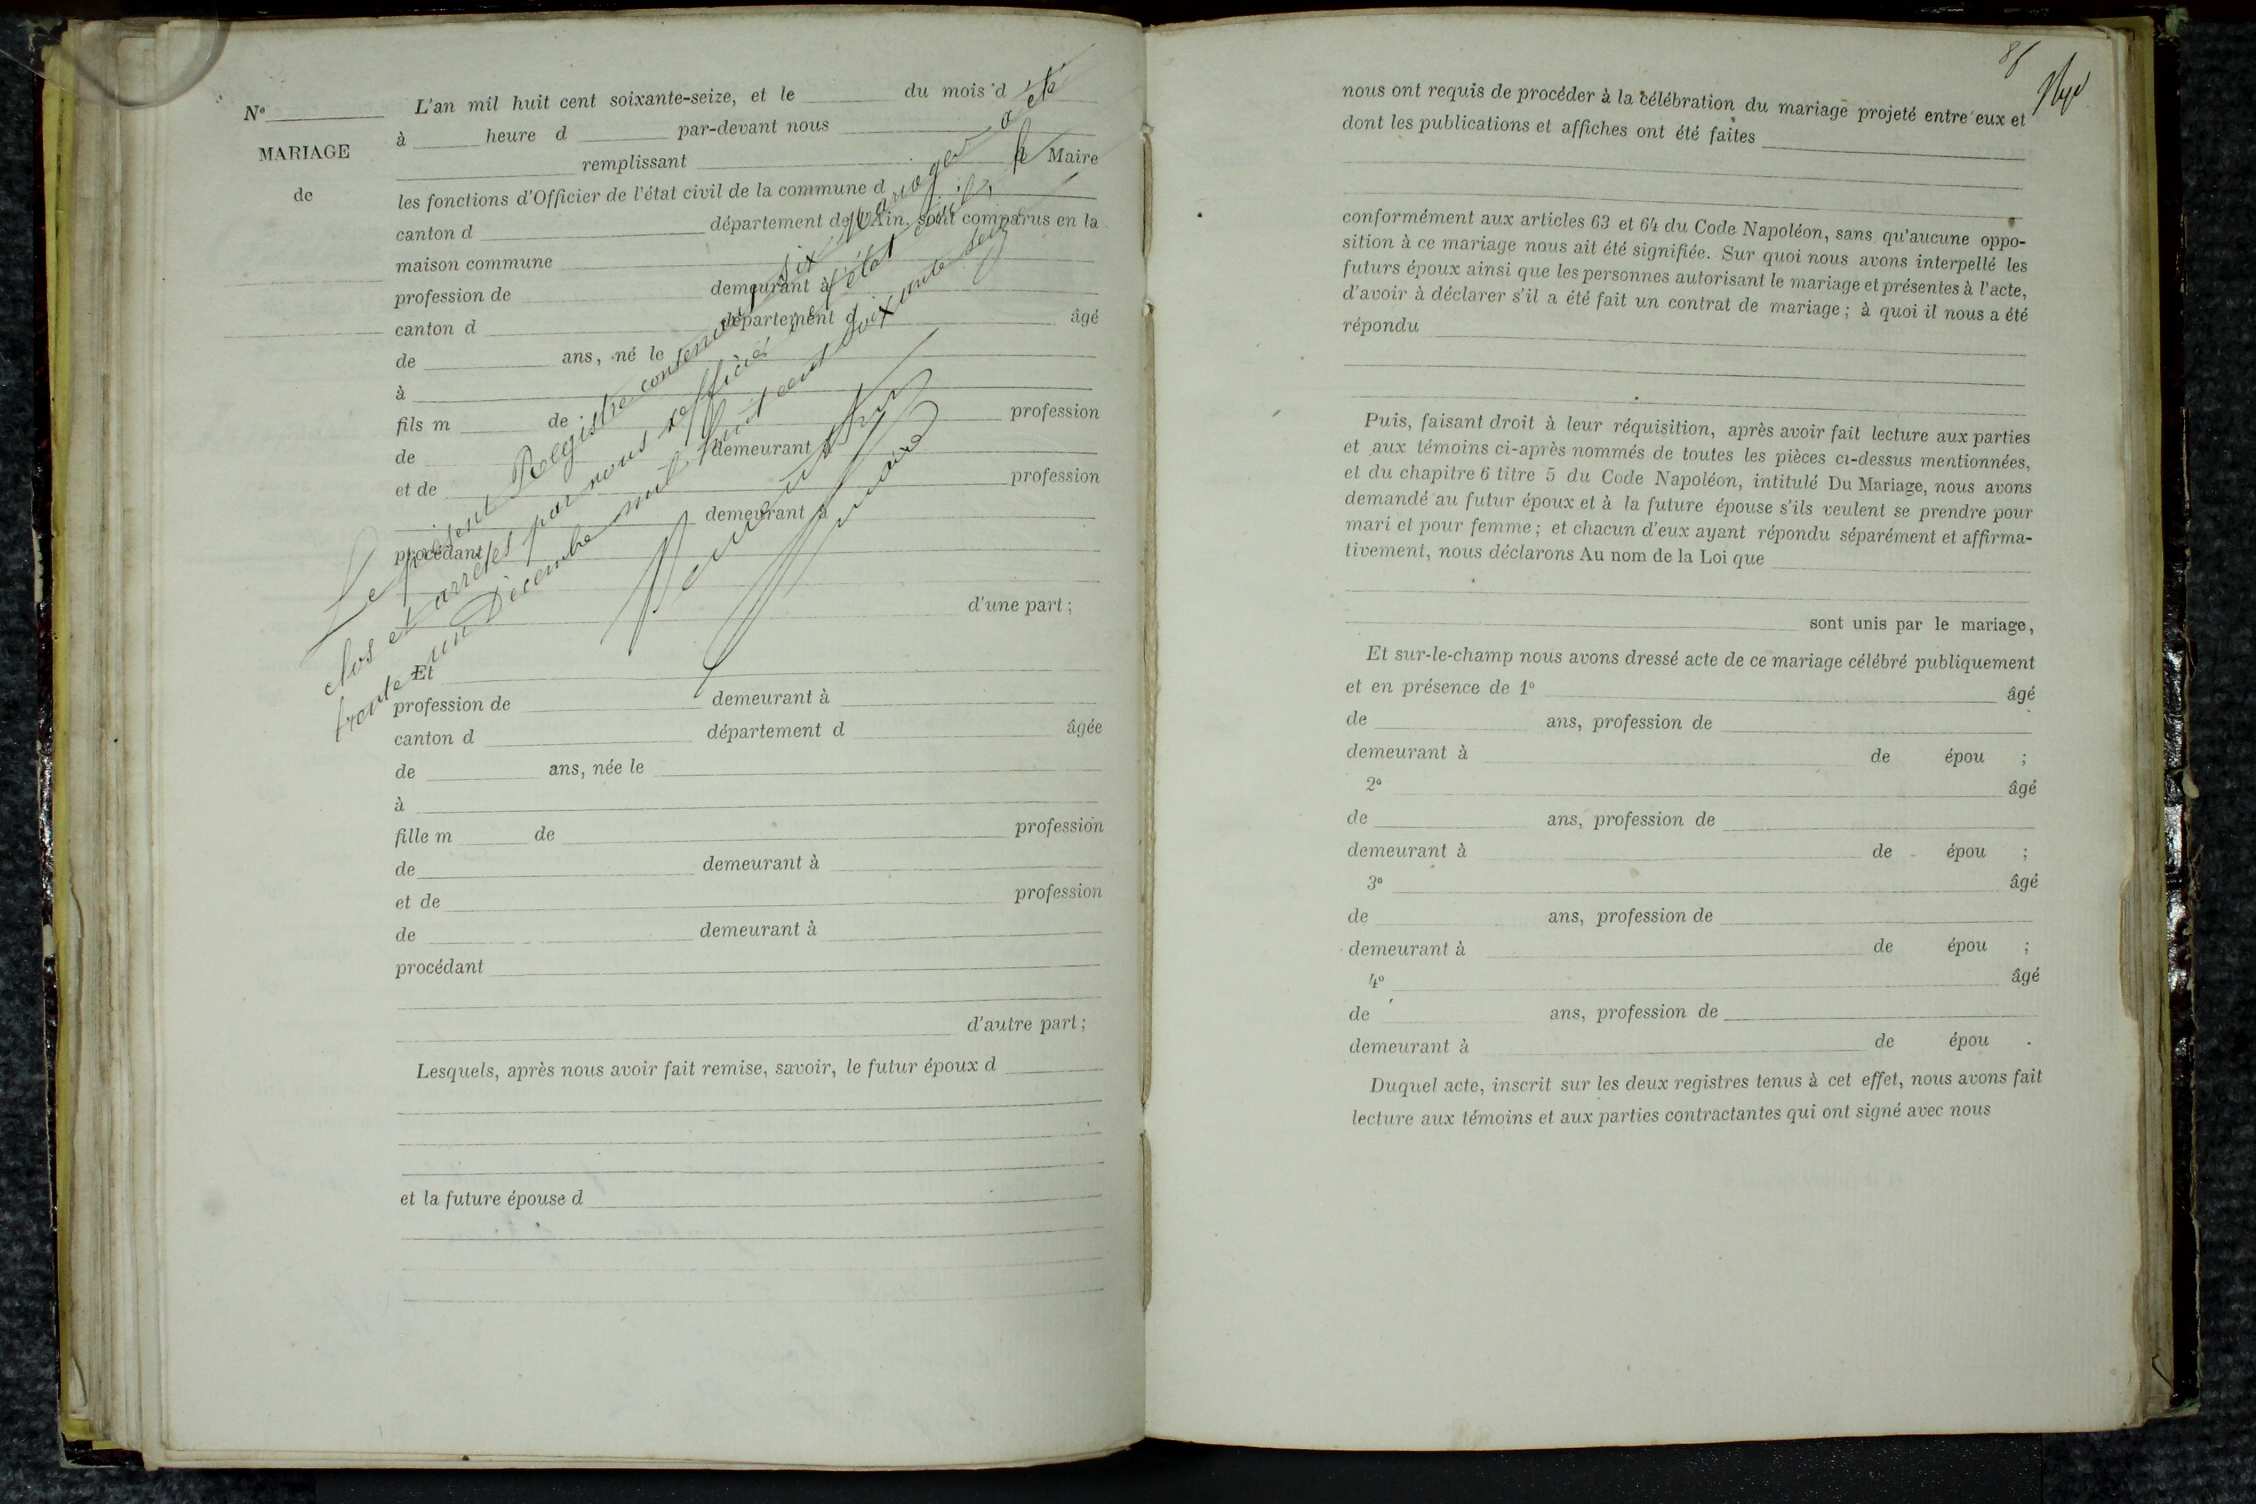 N°
MARIAGE
de
L'an mil huit cent soixante-seize, et le du mois d
à heure d par-devant nous
remplissant Maire
les fonctions d'Officier de l'état civil de la commune d
canton d département de l'Ain, sont comparus en la
maison commune
profession de demeurant à
canton d département d âgé
de ans, né le
à
fils m de profession
de demeurant à
et de profession
demeurant à
procédant
d'une part ;
Et
profession de demeurant à
canton d département d âgée
de ans, née le
à
fille m de profession
de demeurant à
et de profession
de demeurant à
procédant
d'autre part ;
Lesquels, après nous avoir fait remise, savoir, le futur époux d
et la future épouse d
Le présent Registre contenant six mariages a été
clos et arrêtés par nous officier de l'état civil, le
trente un Décembre mil huit cent soixante seize
nous ont requis de procéder à la célébration du mariage projeté entre eux et
dont les publications et affiches ont été faites
conformément aux articles 63 et 64 du Code Napoléon, sans qu'aucune oppo-
sition à ce mariage nous ait été signifiée. Sur quoi nous avons interpellé les
futurs époux ainsi que les personnes autorisant le mariage et présentes à l'acte,
d'avoir à déclarer s'il a été fait un contrat de mariage ; à quoi il nous a été
répondu
Puis, faisant droit à leur réquisition, après avoir fait lecture aux parties
et aux témoins ci-après nommés de toutes les pièces ci-dessus mentionnées,
et du chapitre 6 titre 5 du Code Napoléon, intitulé Du Mariage, nous avons
demandé au futur époux et à la future épouse s'ils veulent se prendre pour
mari et pour femme ; et chacun d'eux ayant répondu séparément et affirma-
tivement, nous déclarons Au nom de la Loi que
sont unis par le mariage,
Et sur-le-champ nous avons dressé acte de ce mariage célébré publiquement
et en présence de 1° âgé
de ans, profession de
demeurant à de épou ;
2° âgé
de ans, profession de
demeurant à de épou ;
3° âgé
de ans, profession de
demeurant à de épou ;
4° âgé
de ans, profession de
demeurant à de épou .
Duquel acte, inscrit sur les deux registres tenus à cet effet, nous avons fait
lecture aux témoins et aux parties contractantes qui ont signé avec nous